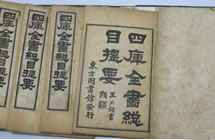 四庫全書總
目提要
東方圖書舘發行
四庫全書總目提要
四庫全書總目提要
四庫全書總目提要